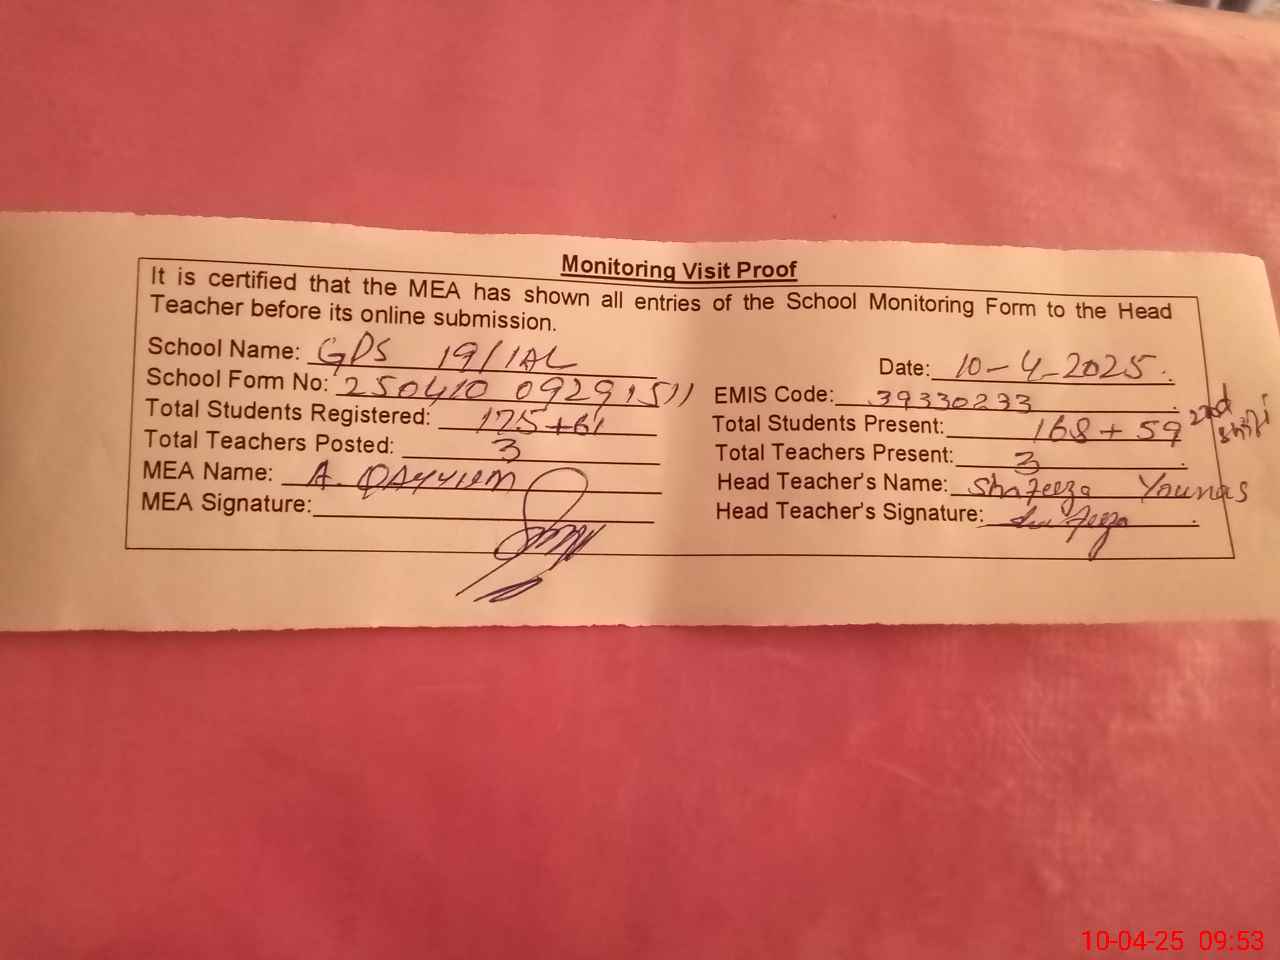 Monitoring Visit Proof
It is certified that the MEA has shown all entries of the School Monitoring Form to the Head
Teacher before its online submission.
School Name: GPS 19/1AL
Date: 10-4-2025.
School Form No: 250410 092915 11
EMIS Code: 39330233
Total Students Registered: 175+61
Total Students Present: 168 + 59 2nd shift
Total Teachers Posted: 3
Total Teachers Present: 3
MEA Name: A. QAYYUM
Head Teacher's Name: Shafeeza Younas
MEA Signature:
Head Teacher's Signature: Shafeeza
10-04-25 09:53